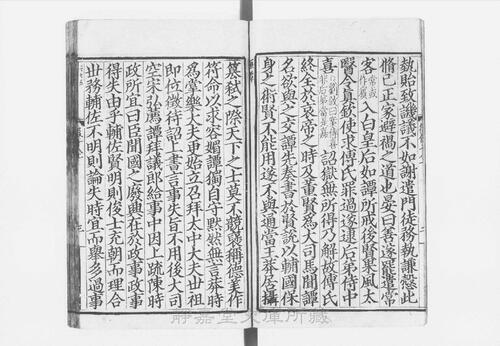 執貽致譏議不如謝遣門徒務執謙愨此
脩己正家避禍之道也晏曰善遂罷遣常
客入白皇后如譚所戒後賢果風太
醫令真欽使求傅氏罪過遂逮后弟侍中
喜詔獄無所得乃解故傅氏
終全於哀帝之時及董賢爲大司馬聞譚
名欲與之交譚先奏書於賢說以輔國保
身之術賢不能用遂不與通當王莽居攝
篡弑之際天下之士莫不競襃稱德美作
符命以求容媚譚獨自守默然無言莽時
爲掌樂大夫更始立召拜太中大夫世祖
即位徵待詔上書言事失旨不用後大司
空宋弘薦譚拜議郎給事中因上疏陳時
政所宜曰臣聞國之廢興在於政事政事
得失由乎輔佐賢明則俊士充朝而理合
世務輔佐不明則論失時宜而舉多過事
静嘉堂文庫所蔵